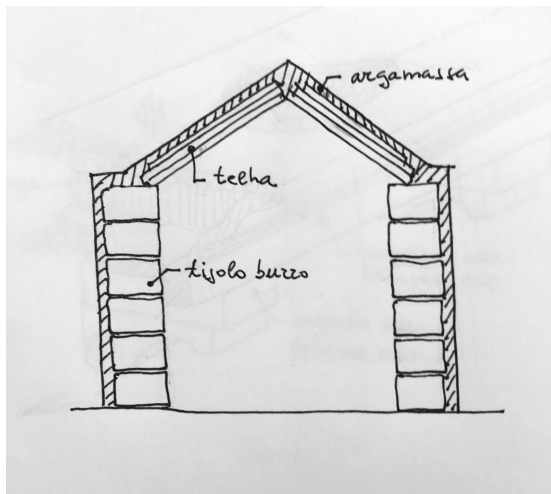 argamassa
telha
tijolo burro